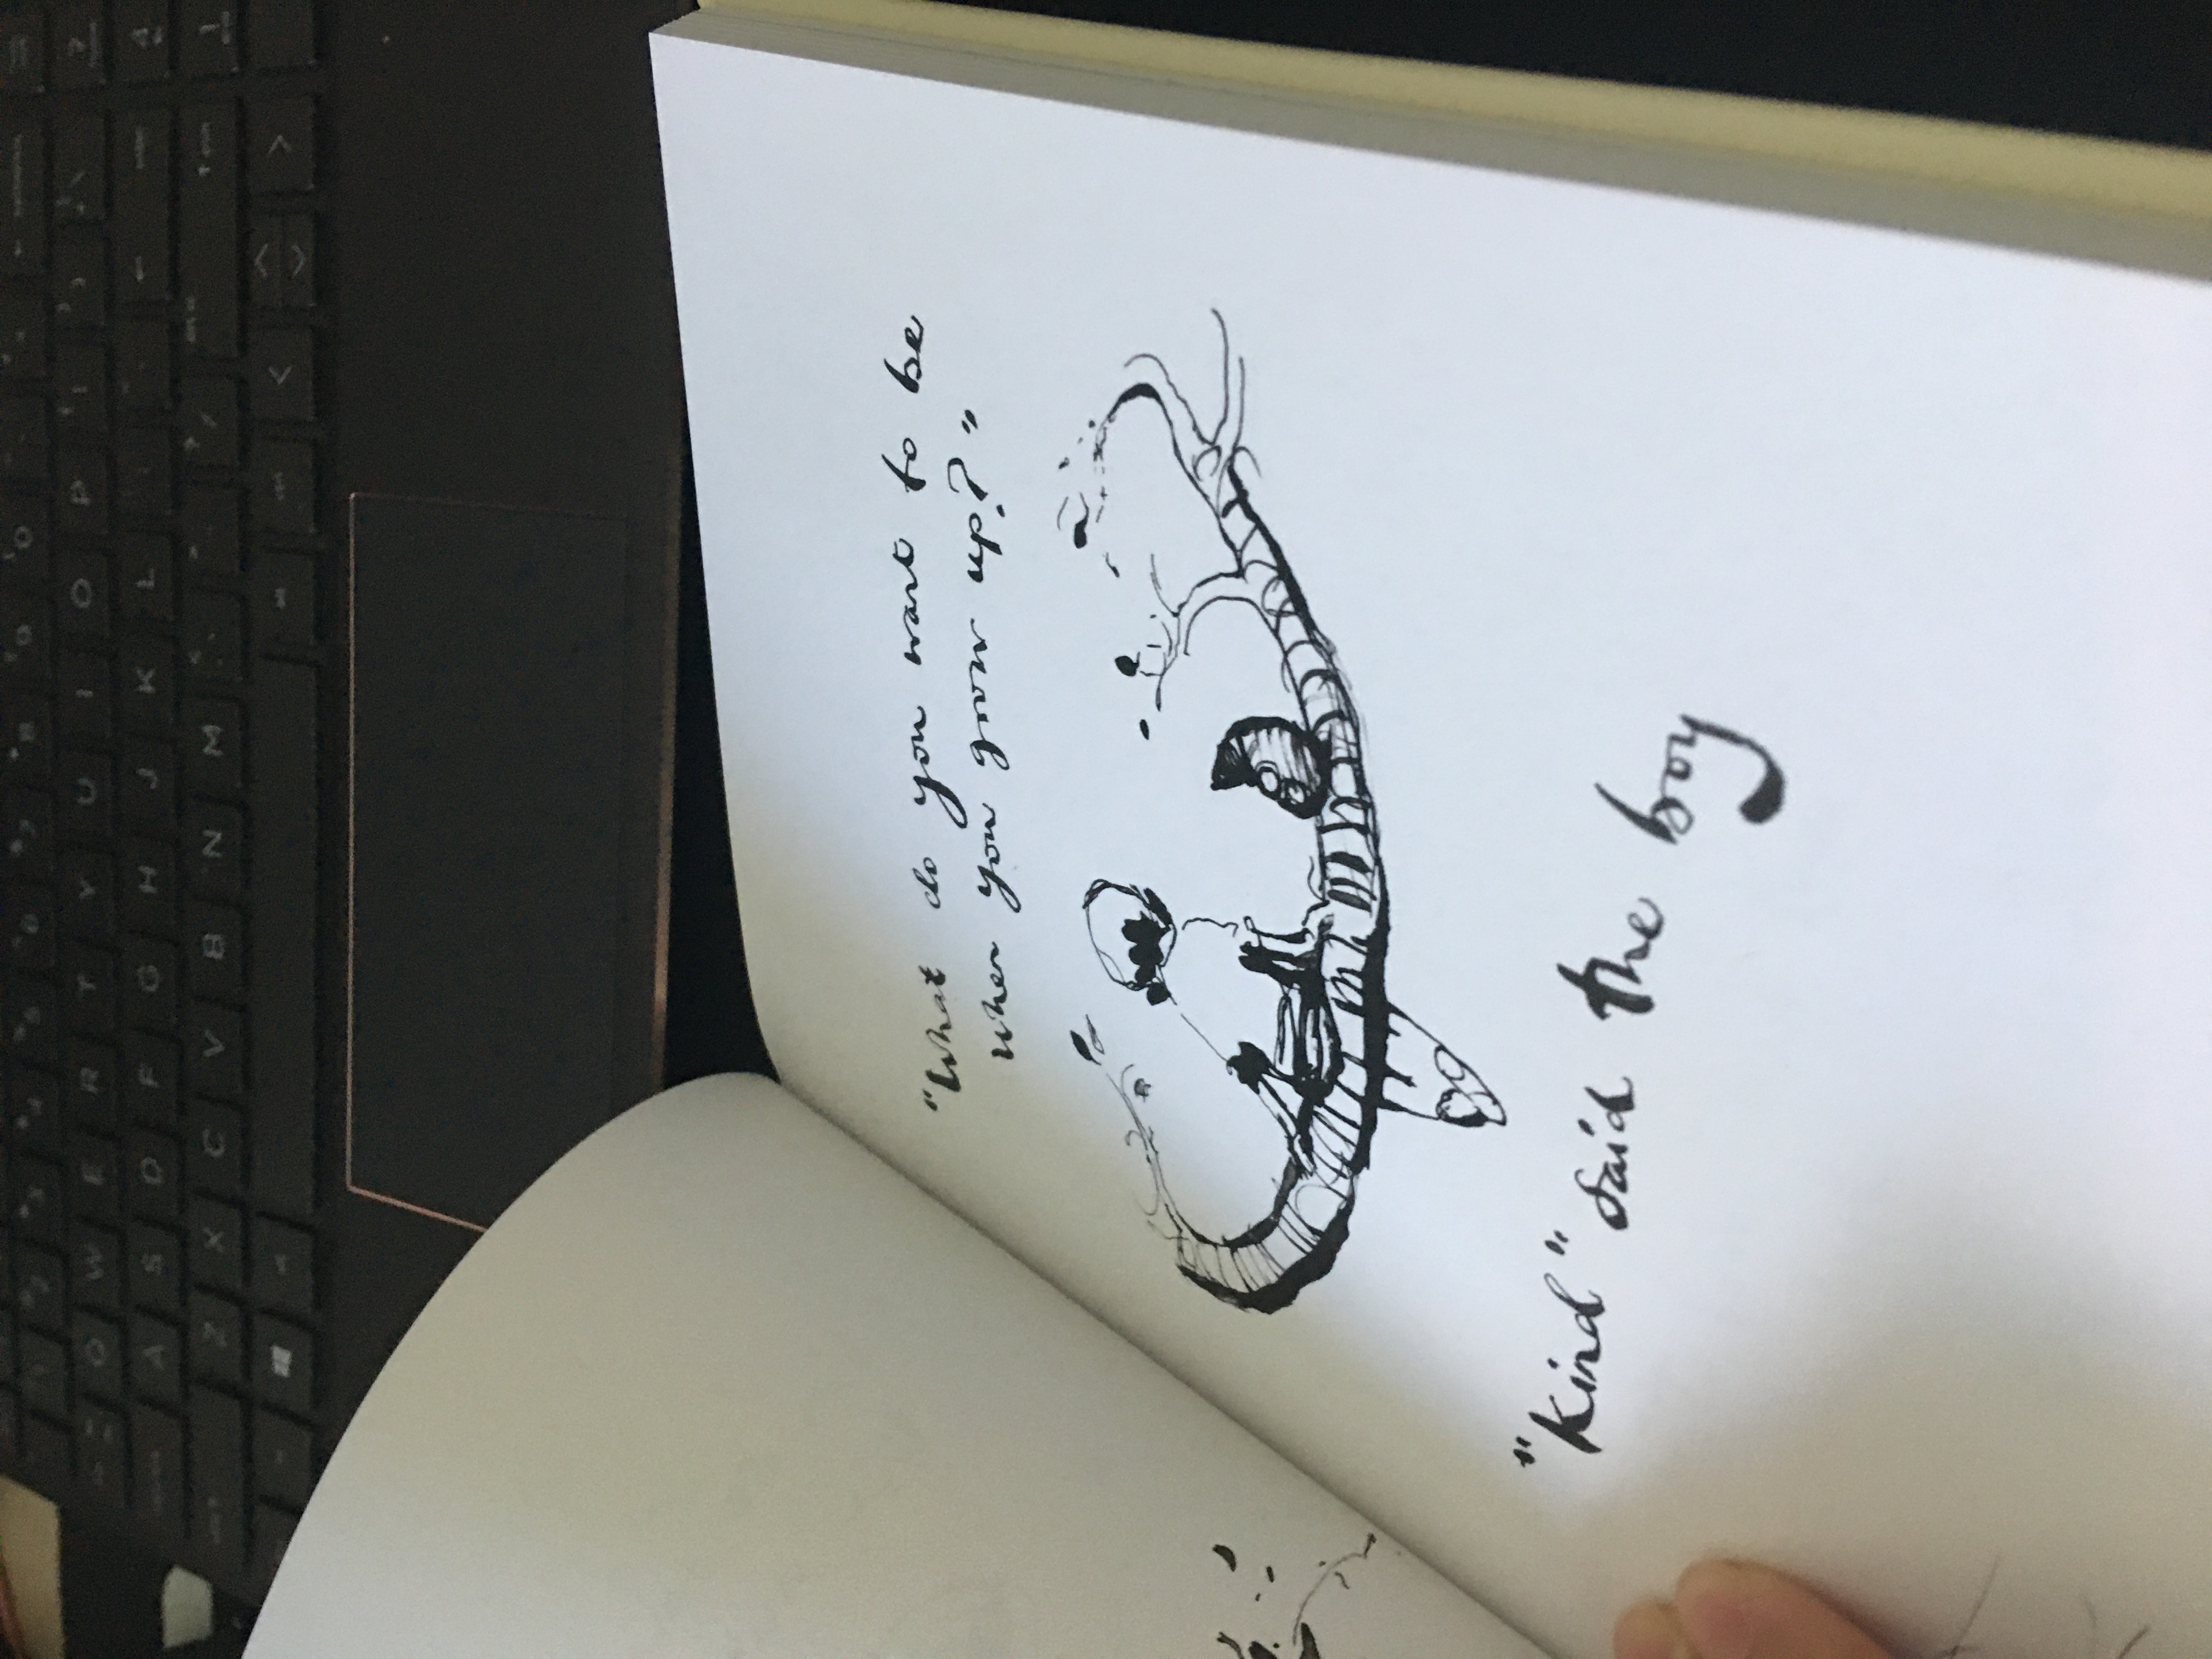 Q W E R T Y U I O P
A S D F G H J K L
Z X C V B N M
"What do you want to be
when you grow up?"
"Kind" said the boy